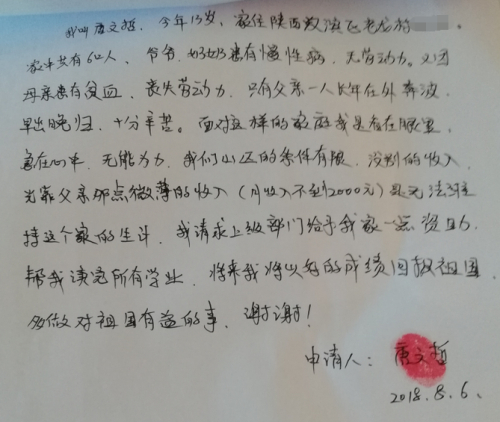 我叫唐文哲，今年13岁，家住陕西汉滨飞老龙村
家中共有6口人，爷爷、奶奶患有慢性病，无劳动力。又因
母亲患有贫血，丧失劳动力，只有父亲一人长年在外奔波，
早出晚归，十分辛苦。面对这样的家庭我是看在眼里，
急在心中，无能为力，我们山区的条件有限，没别的收入，
光靠父亲那点微薄的收入（月收入不到2000元）是无法维
持这个家的生计，我请求上级部门给予我家一点资助，
帮我读完所有学业，将来我将以好的成绩回报祖国，
多做对祖国有益的事，谢谢！
申请人：唐文哲
2018.8.6.